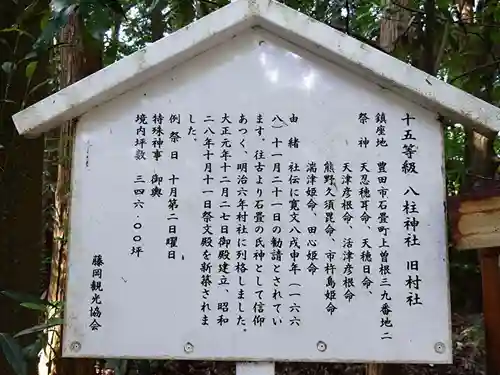 十五等級 八柱神社 旧村社
鎮座地 豊田市石畳町上曽根三九番地二
祭神 天忍穂耳命、天穂日命、
天津彦根命、活津彦根命
熊野久須毘命、市杵島姫命
湍津姫命、田心姫命
由緒 社伝に寛文八戊申年（一六六
八）十一月二十一日の勧請とされてい
ます。往古より石畳の氏神として信仰
あつく、明治六年村社に列格しました。
大正元年十二月二七日御殿建立、昭和
二八年十月十一日祭文殿を新築されま
した。
例祭日 十月第二日曜日
特殊神事 御輿
境内坪数 三四六・〇〇坪
藤岡観光協会